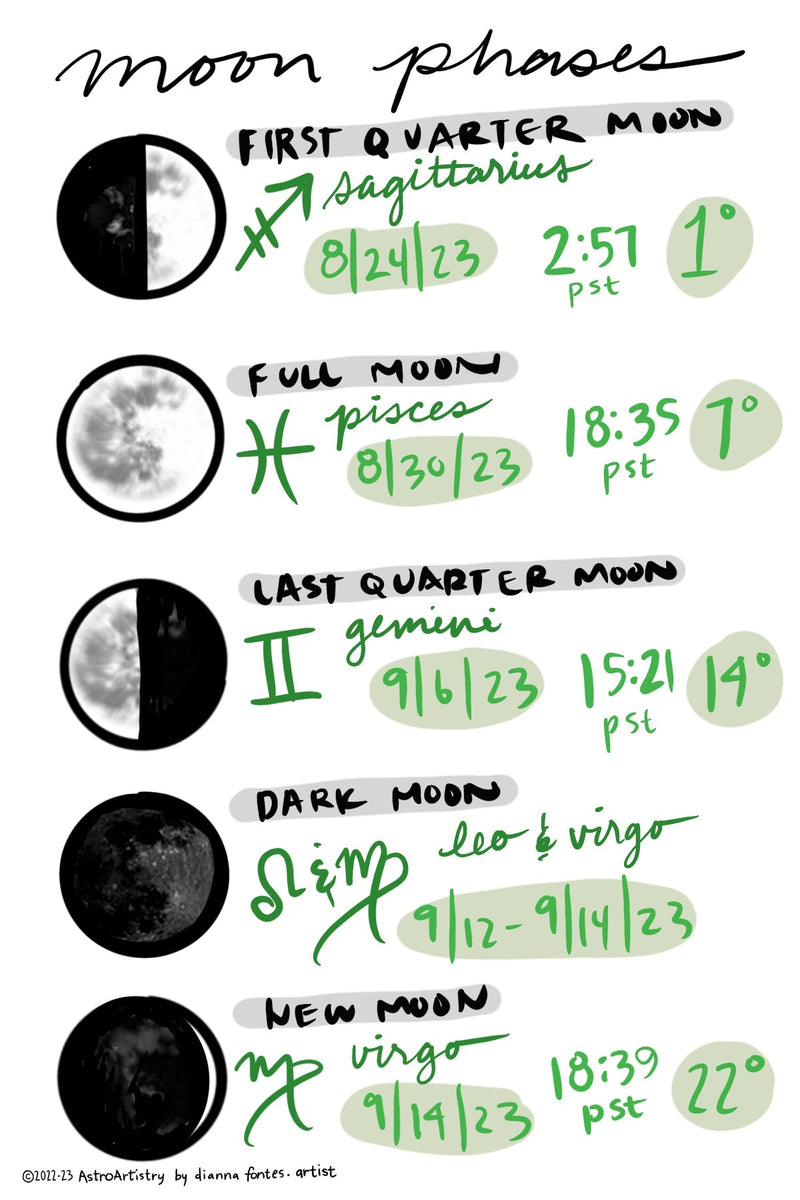 moon phases
FIRST QUARTER MOON
sagittarius
8/24/23 2:57 1°
pst
FULL MOON
pisces
8/30/23 18:35 7°
pst
LAST QUARTER MOON
gemini
9/6/23 15:21 14°
pst
DARK MOON
leo & virgo
&
9/12-9/14/23
NEW MOON
virgo
9/14/23 18:39 22°
pst
©2022-23 AstroArtistry by dianna fontes.artist